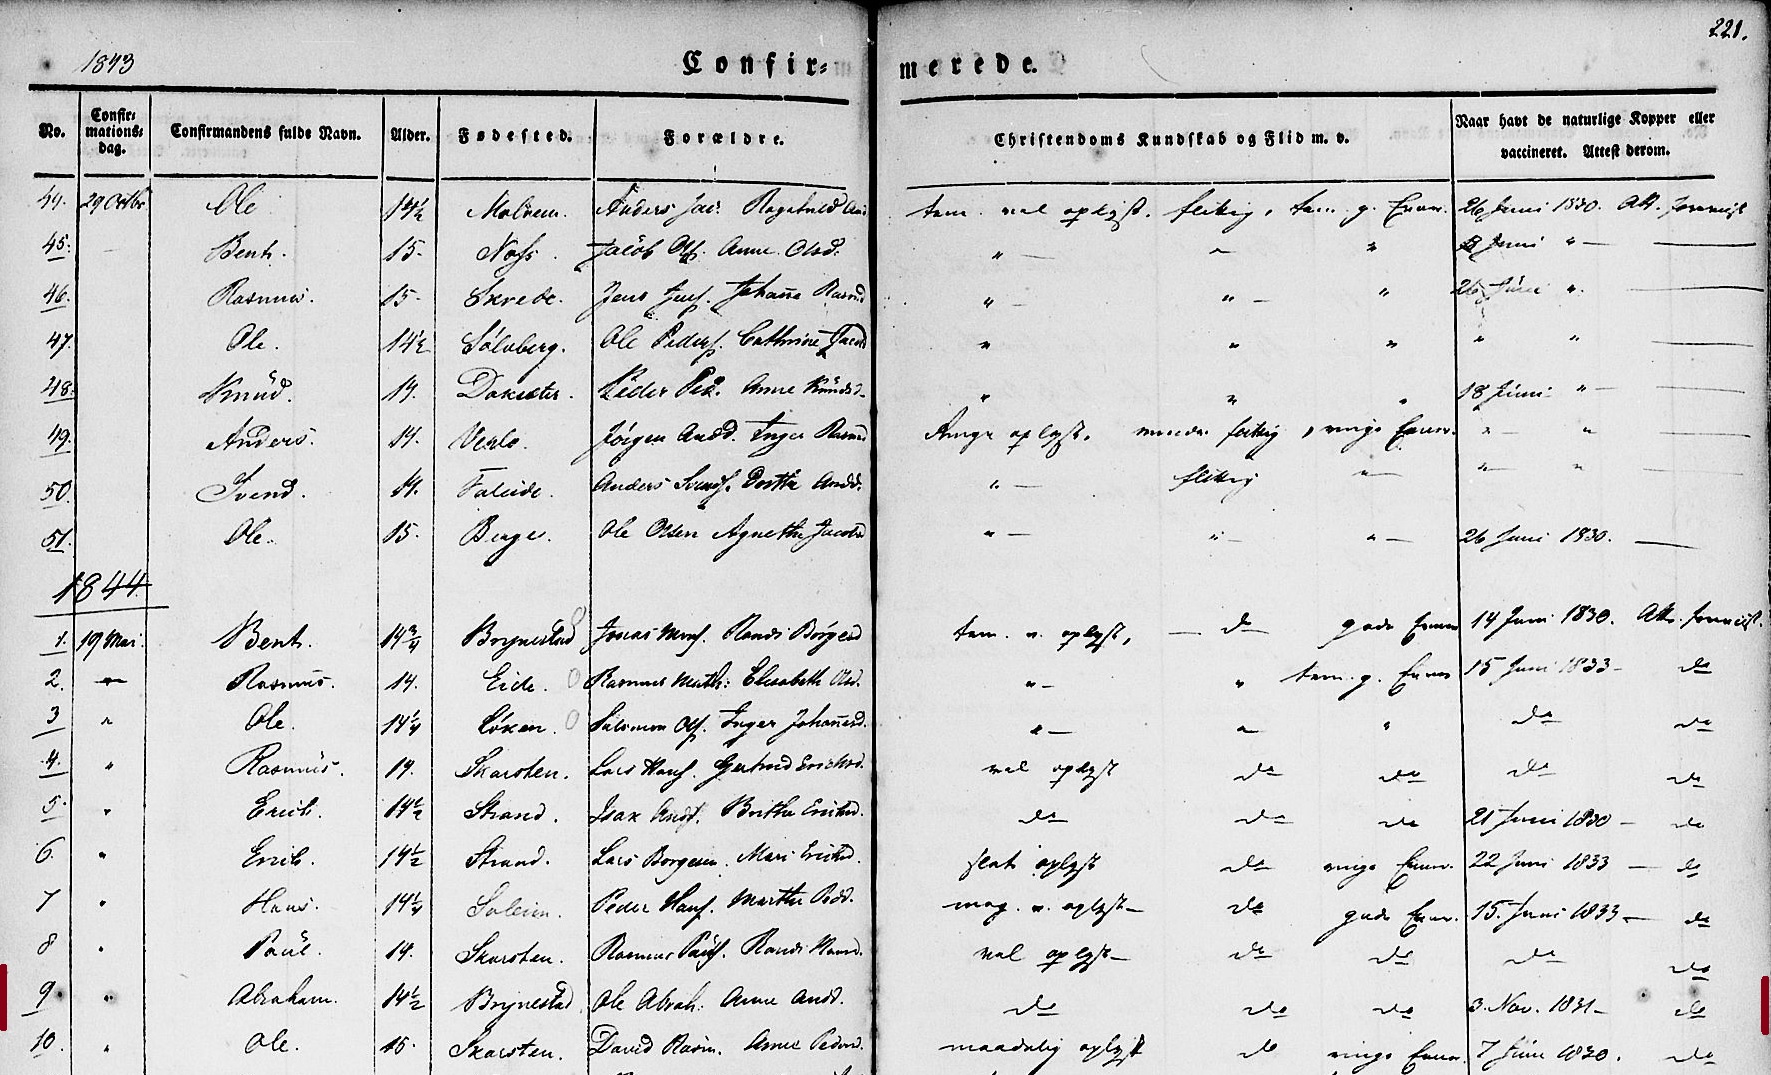 221.
1843 Confir= merede.
No. Confir= mations= dag. Confirmandens fulde Navn. Alder. Fødested. Forældre. Christendoms Kundskab og Flid m. v. Naar havt de naturlige Kopper eller vaccineret. Attest derom.
44. 29 Octbr Ole 14½ Molvem. Anders Jac: Ragnhild And tem. vel oplyst. flittig, tem. g. Evner. 26 Juni 1830. Att. forevist
45. — Bent. 15. Nos. Jacob Ols. Anne Olsd. " — — " 8 Juni " — —
46. Rasmus. 15. Skrede. Jens Jens. Johanne Rasmd " — " — " 26 Juni " —
47. Ole. 14½ Sølvberg. Ole Peders. Cathrine Jacobd " " " " " —
48. Knud. 14. Peder Ped. Anne Knudsd. " " " 18 Juni " — —
49. Anders. 14. Jørgen Andd. Inger Rasmd Ringe oplyst. mindre flittig, ringe Evner. " — " —
50. Svend. 14. Faleide. Anders Svends. Dorthe Andd. " — flittig " — " — " —
51. Ole. 15. Berge. Ole Olsen Agnethe Jacobsd " — " — " — 26 Juni 1830. —
1844
1. 19 Mai. Bent. 14¾ Brynestad Jonas Mons. Randi Børgesd tem. v. oplyst, — do gode Evner 14 Juni 1830. Att. forevist.
2. — Rasmus. 14. Eide. Rasmus Math: Elisabeth Olsd. " — " tem. g. Evner 15 Juni 1833 — do
3 " Ole. 14¼ Løken. Salomon Ols. Inger Johannesd. " — " " do do
4. " Rasmus. 14. Skarsten. Lars Hans. Gertrud Erichsd. vel oplyst do do do do
5. " Erich. 14½ Strand. Isak Ands. Brithe Erichsd. do do do 21 Juni 1830 — do
6. " Erich. 14½ Strand. Lars Borgesen. Mari Erichsd. slet oplyst do ringe Evner. 22 Juni 1833 — do
7 " Hans. 14¼ Soleim. Peder Hans. Marthe Pedd. mag. v. oplyst — do gode Evner. 15. Juni 1833 — do
8 " Paul. 14. Skarsten. Rasmus Pauls. Randi Hansd. vel oplyst — do do do do
9 " Abraham. 14½ Brynestad. Ole Abrah. Anne Andd. do do do 3. Nov. 1831 — do
10. " Ole. 15. Skarsten. David Rasm. Anne Pedersd. maadelig oplyst do ringe Evner. 7 Juni 1830. do